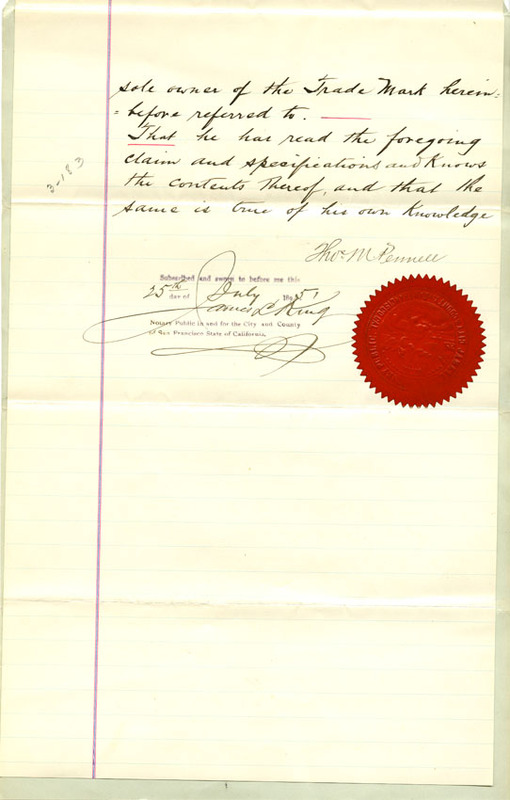 sole owner of the Trade Mark herein=
=before referred to.
That he has read the foregoing
claim and specifications and knows
the contents thereof, and that the
same is true of his own knowledge
3-183
Thos M Pennell
Subscribed and sworn to before me this
25th day of July 189
James L King
Notary Public in and for the City and County
of San Francisco State of California.